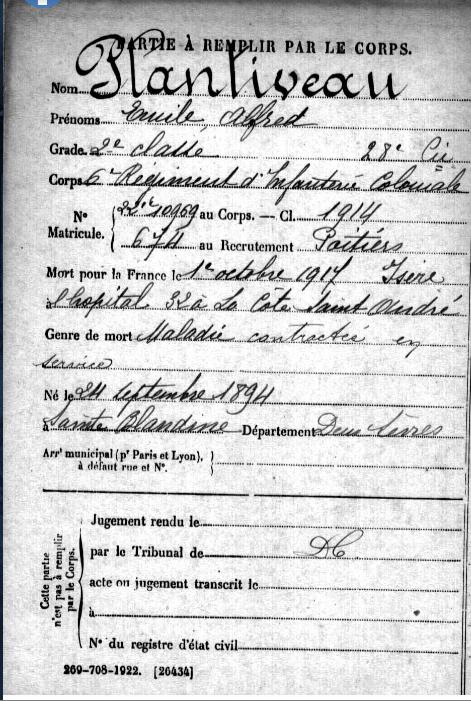 PARTIE À REMPLIR PAR LE CORPS.
Nom Plantiveau
Prénoms Emile, Alfred
Grade 2e classe 28e Cie
Corps 6e Regiment d'Infanterie Coloniale
N° Matricule. { 10969 au Corps. — Cl. 1914
674 au Recrutement Poitiers
Mort pour la France le 1e octobre 1917 Isere
à l'hopital 32 à La Côte Saint André
Genre de mort Maladie contractée en
service
Né le 24 septembre 1894
à Sainte Blandine Département Deux Sèvres
Arrt municipal (pr Paris et Lyon),
à défaut rue et N°.
Cette partie n'est pas à remplir par le Corps.
Jugement rendu le
par le Tribunal de
acte ou jugement transcrit le
à
N° du registre d'état civil
269-708-1922. [26434]